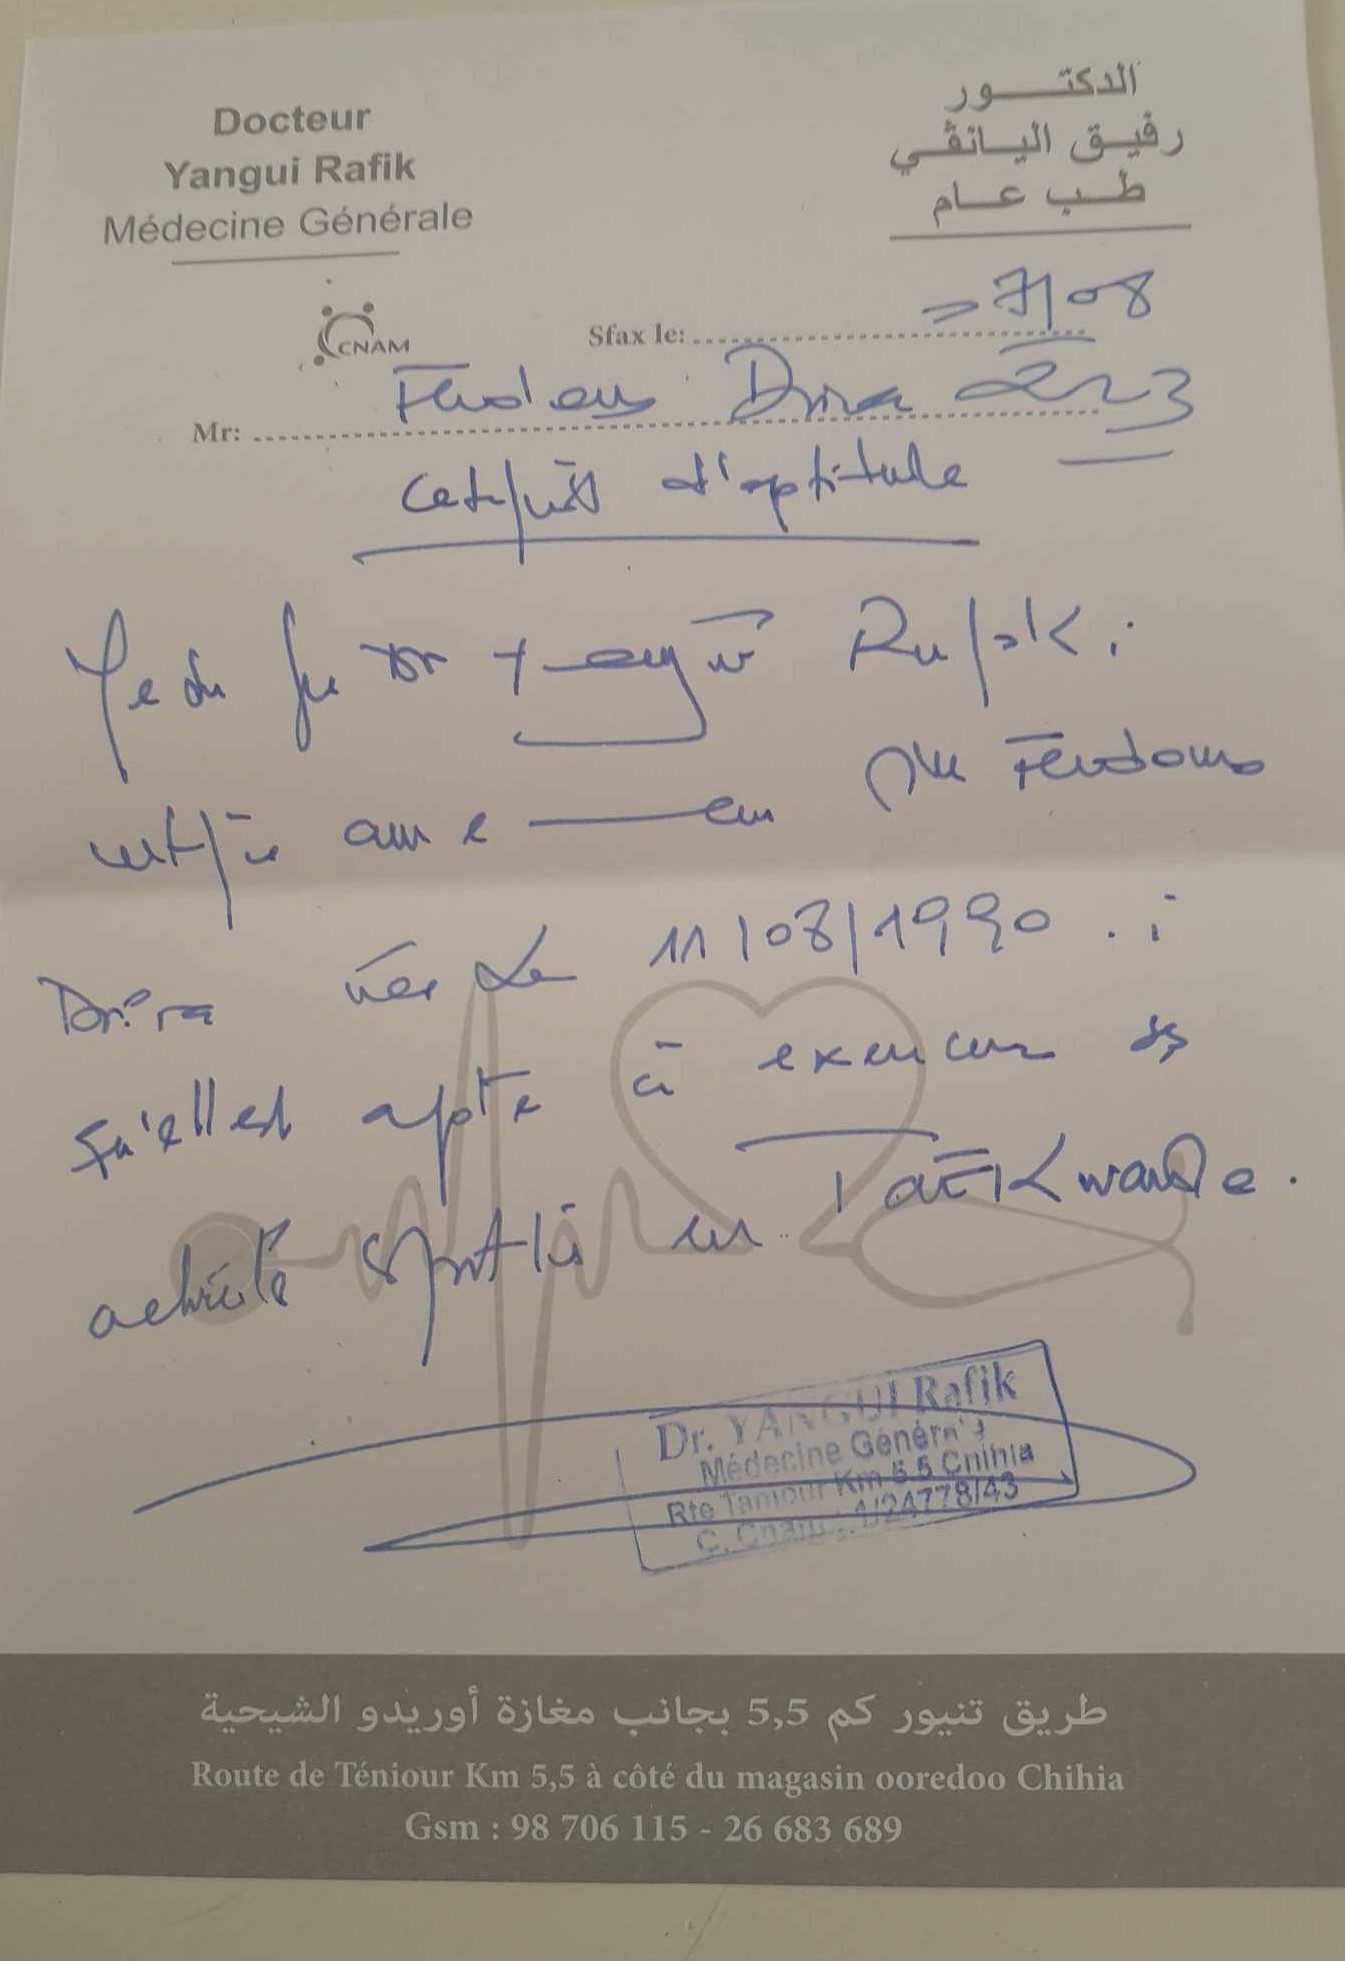 Docteur
Yangui Rafik
Médecine Générale
الدكتور
رفيق اليانقي
طب عام
CNAM
Sfax le: 27/08
2023
Mr: Ferdaous Drira
Certificat d'aptitude
Je Dr Yangui Rafik
certifie que Ferdaous
Drira née le 11/08/1990
qu'elle est apte à exercer
activité sportive en Taekwando.
Dr. YANGUI Rafik
Médecine Générale
Rte Taniour Km 5.5 Chihia
C. Cnam : 1/24778/43
طريق تنيور كم 5,5 بجانب مغازة أوريدو الشيحية
Route de Téniour Km 5,5 à côté du magasin ooredoo Chihia
Gsm : 98 706 115 - 26 683 689